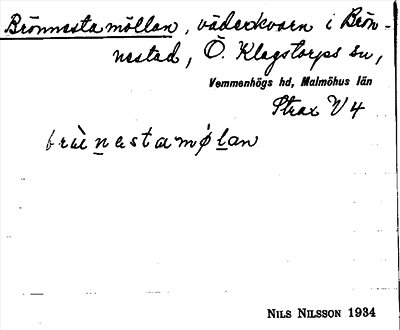 Brönnesta möllan, väderkvarn i Brön-
nestad, Ö. Klagstorps sn,
Vemmenhögs hd, Malmöhus län
Strax V 4
NILS NILSSON 1934